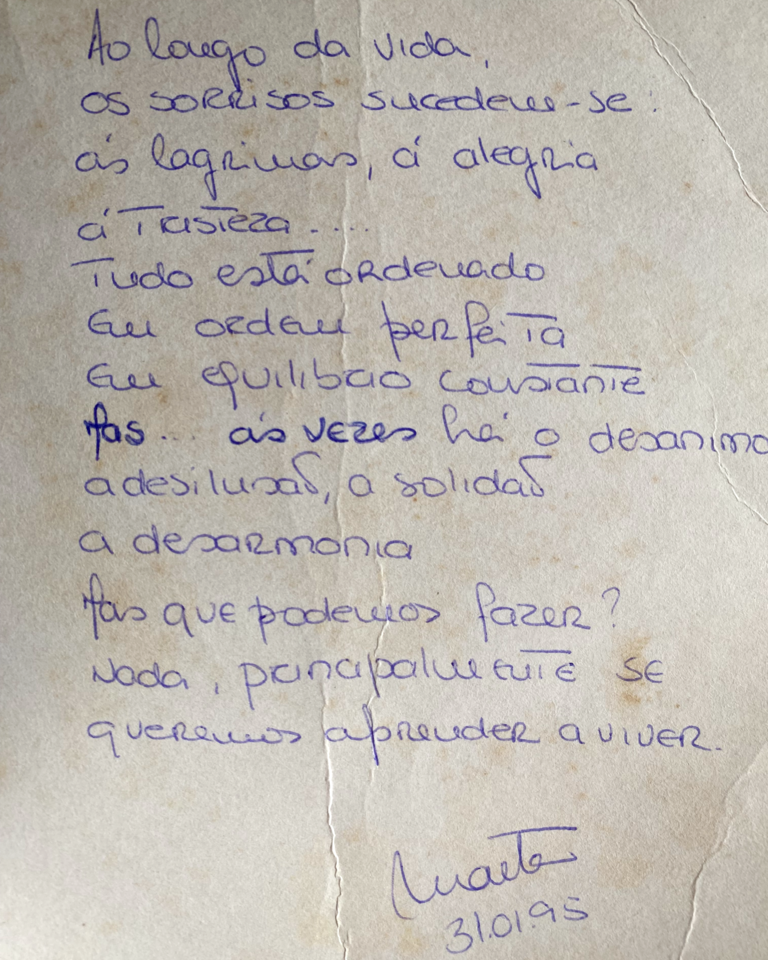 Ao longo da vida,
os sorrisos sucedem-se:
ás lagrimas, á alegria
á Tristeza....
Tudo está ordenado
Em ordem perfeita
Em equilibrio constante
Mas... ás vezes há o desanimo
a desilusaõ, a solidaõ
a desarmonia
Mas que podemos fazer?
Nada, principalmente se
queremos aprender a viver.
31.01.95